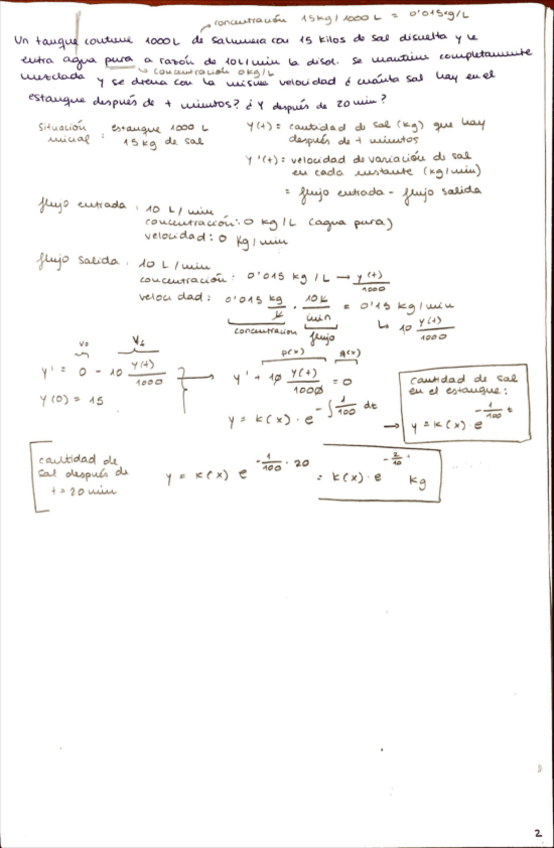 concentración 15kg/1000 L = 0'015kg/L
Un tanque contiene 1000L de salmuera con 15 kilos de sal disuelta y le
entra agua pura a razón de 10L/min la disol. se mantiene completamente
concentración 0kg/L
mezclada y se drena con la misma velocidad ¿ cuánta sal hay en el
estanque después de t minutos? ¿ Y después de 20 min?
Situación inicial : estanque 1000 L
15 kg de sal
y(t) = cantidad de sal (kg) que hay
después de t minutos
y'(t) = velocidad de variación de sal
en cada instante (kg/min)
= flujo entrada - flujo salida
flujo entrada : 10 L/min
concentración: 0 kg/L (agua pura)
velocidad: 0 kg/min
flujo salida : 10 L/min
concentración : 0'015 kg/L → y(t)/1000
velocidad : 0'015 kg/L · 10L/min = 0'15 kg/min
concentración flujo ↳ 10 y(t)/1000
y' = 0 - 10 y(t)/1000
y(0) = 15
p(x) q(x)
y' + 10 y(t)/1000 = 0
y = k(x) · e^(-∫ 1/100 dt)
cantidad de sal
en el estanque:
→ y = k(x) · e^(-1/100 t)
cantidad de
sal después de
t = 20 min
y = k(x) e^(-1/100 · 20) = k(x) · e^(-2/10) kg
2